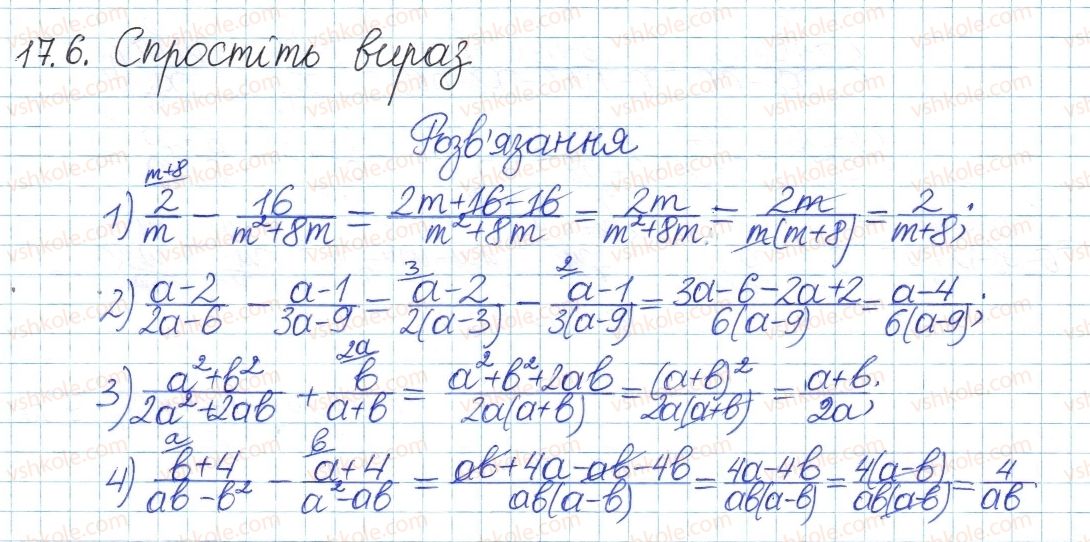 17.6. Спростіть вираз
Розв'язання
1) \frac{2}{m}^{m+8} - \frac{16}{m²+8m} = \frac{2m+16-16}{m²+8m} = \frac{2m}{m²+8m} = \frac{2m}{m(m+8)} = \frac{2}{m+8};
2) \frac{a-2}{2a-6} - \frac{a-1}{3a-9} = \frac{a-2}{2(a-3)}^{3} - \frac{a-1}{3(a-9)}^{2} = \frac{3a-6-2a+2}{6(a-9)} = \frac{a-4}{6(a-9)};
3) \frac{a²+b²}{2a²+2ab} + \frac{b}{a+b}^{2a} = \frac{a²+b²+2ab}{2a(a+b)} = \frac{(a+b)²}{2a(a+b)} = \frac{a+b}{2a};
4) \frac{b+4}{ab-b²}^{a} - \frac{a+4}{a²-ab}^{b} = \frac{ab+4a-ab-4b}{ab(a-b)} = \frac{4a-4b}{ab(a-b)} = \frac{4(a-b)}{ab(a-b)} = \frac{4}{ab}.